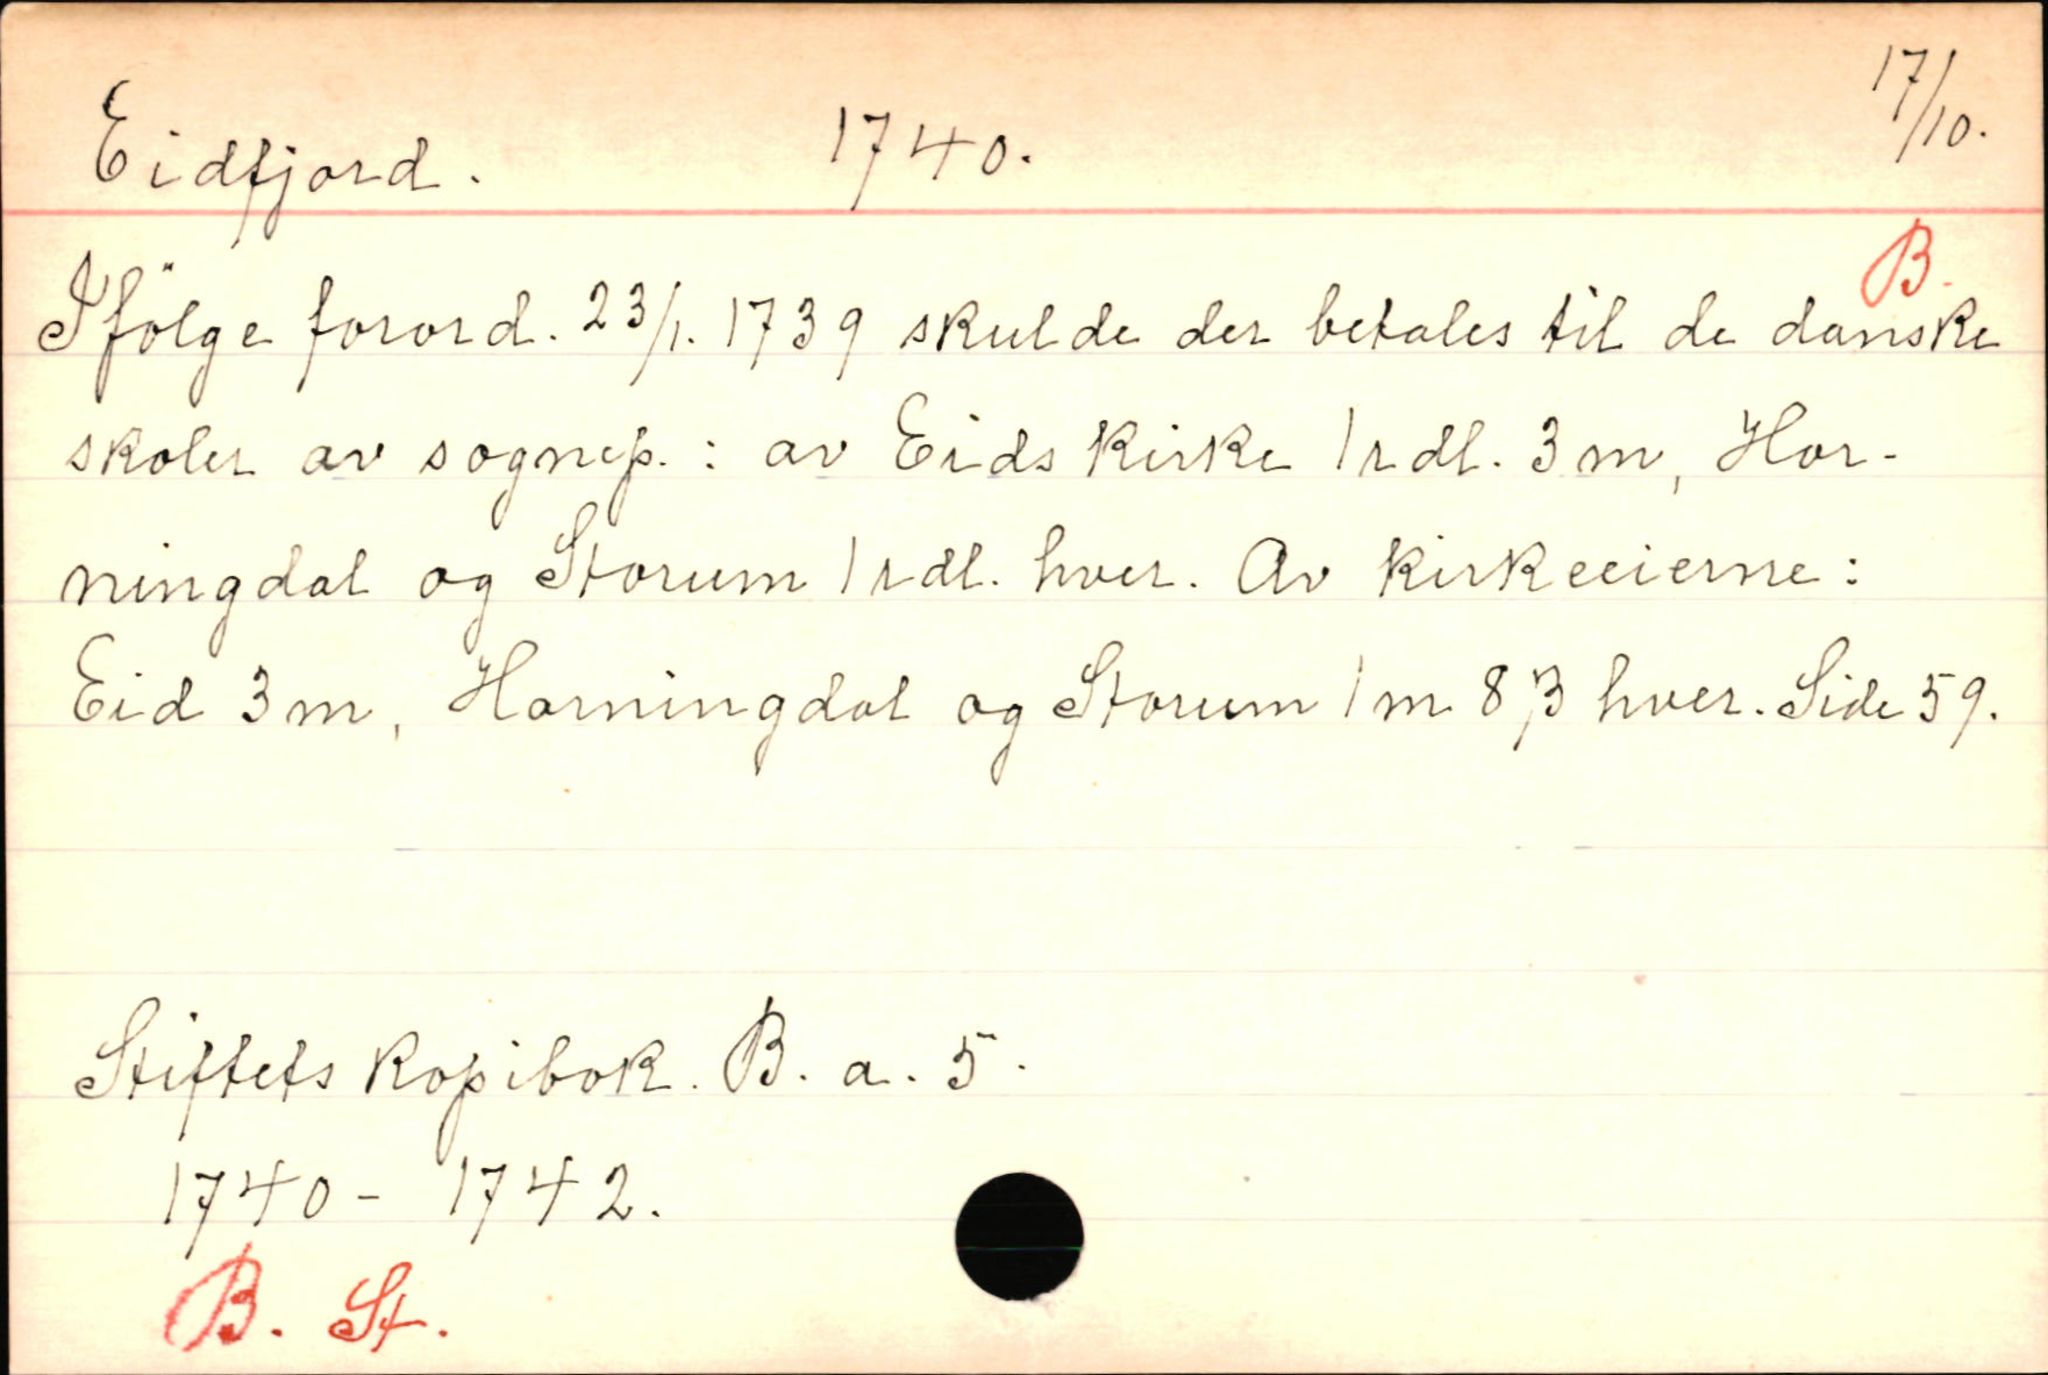 Eidfjord. 1740. 17/10.
B.
Ifölge forord. 23/1. 1739 skulde der betales til de danske
skoler av sognep. : av Eids kirke 1 rdl. 3 m, Hor-
ningdal og Storum 1 rdl. hver. Av kirkeeierne :
Eid 3 m, Horningdal og Storum 1 m 8 β hver. Side 59.
Stiftets kopibok. B. a. 5.
1740 - 1742.
B. St.